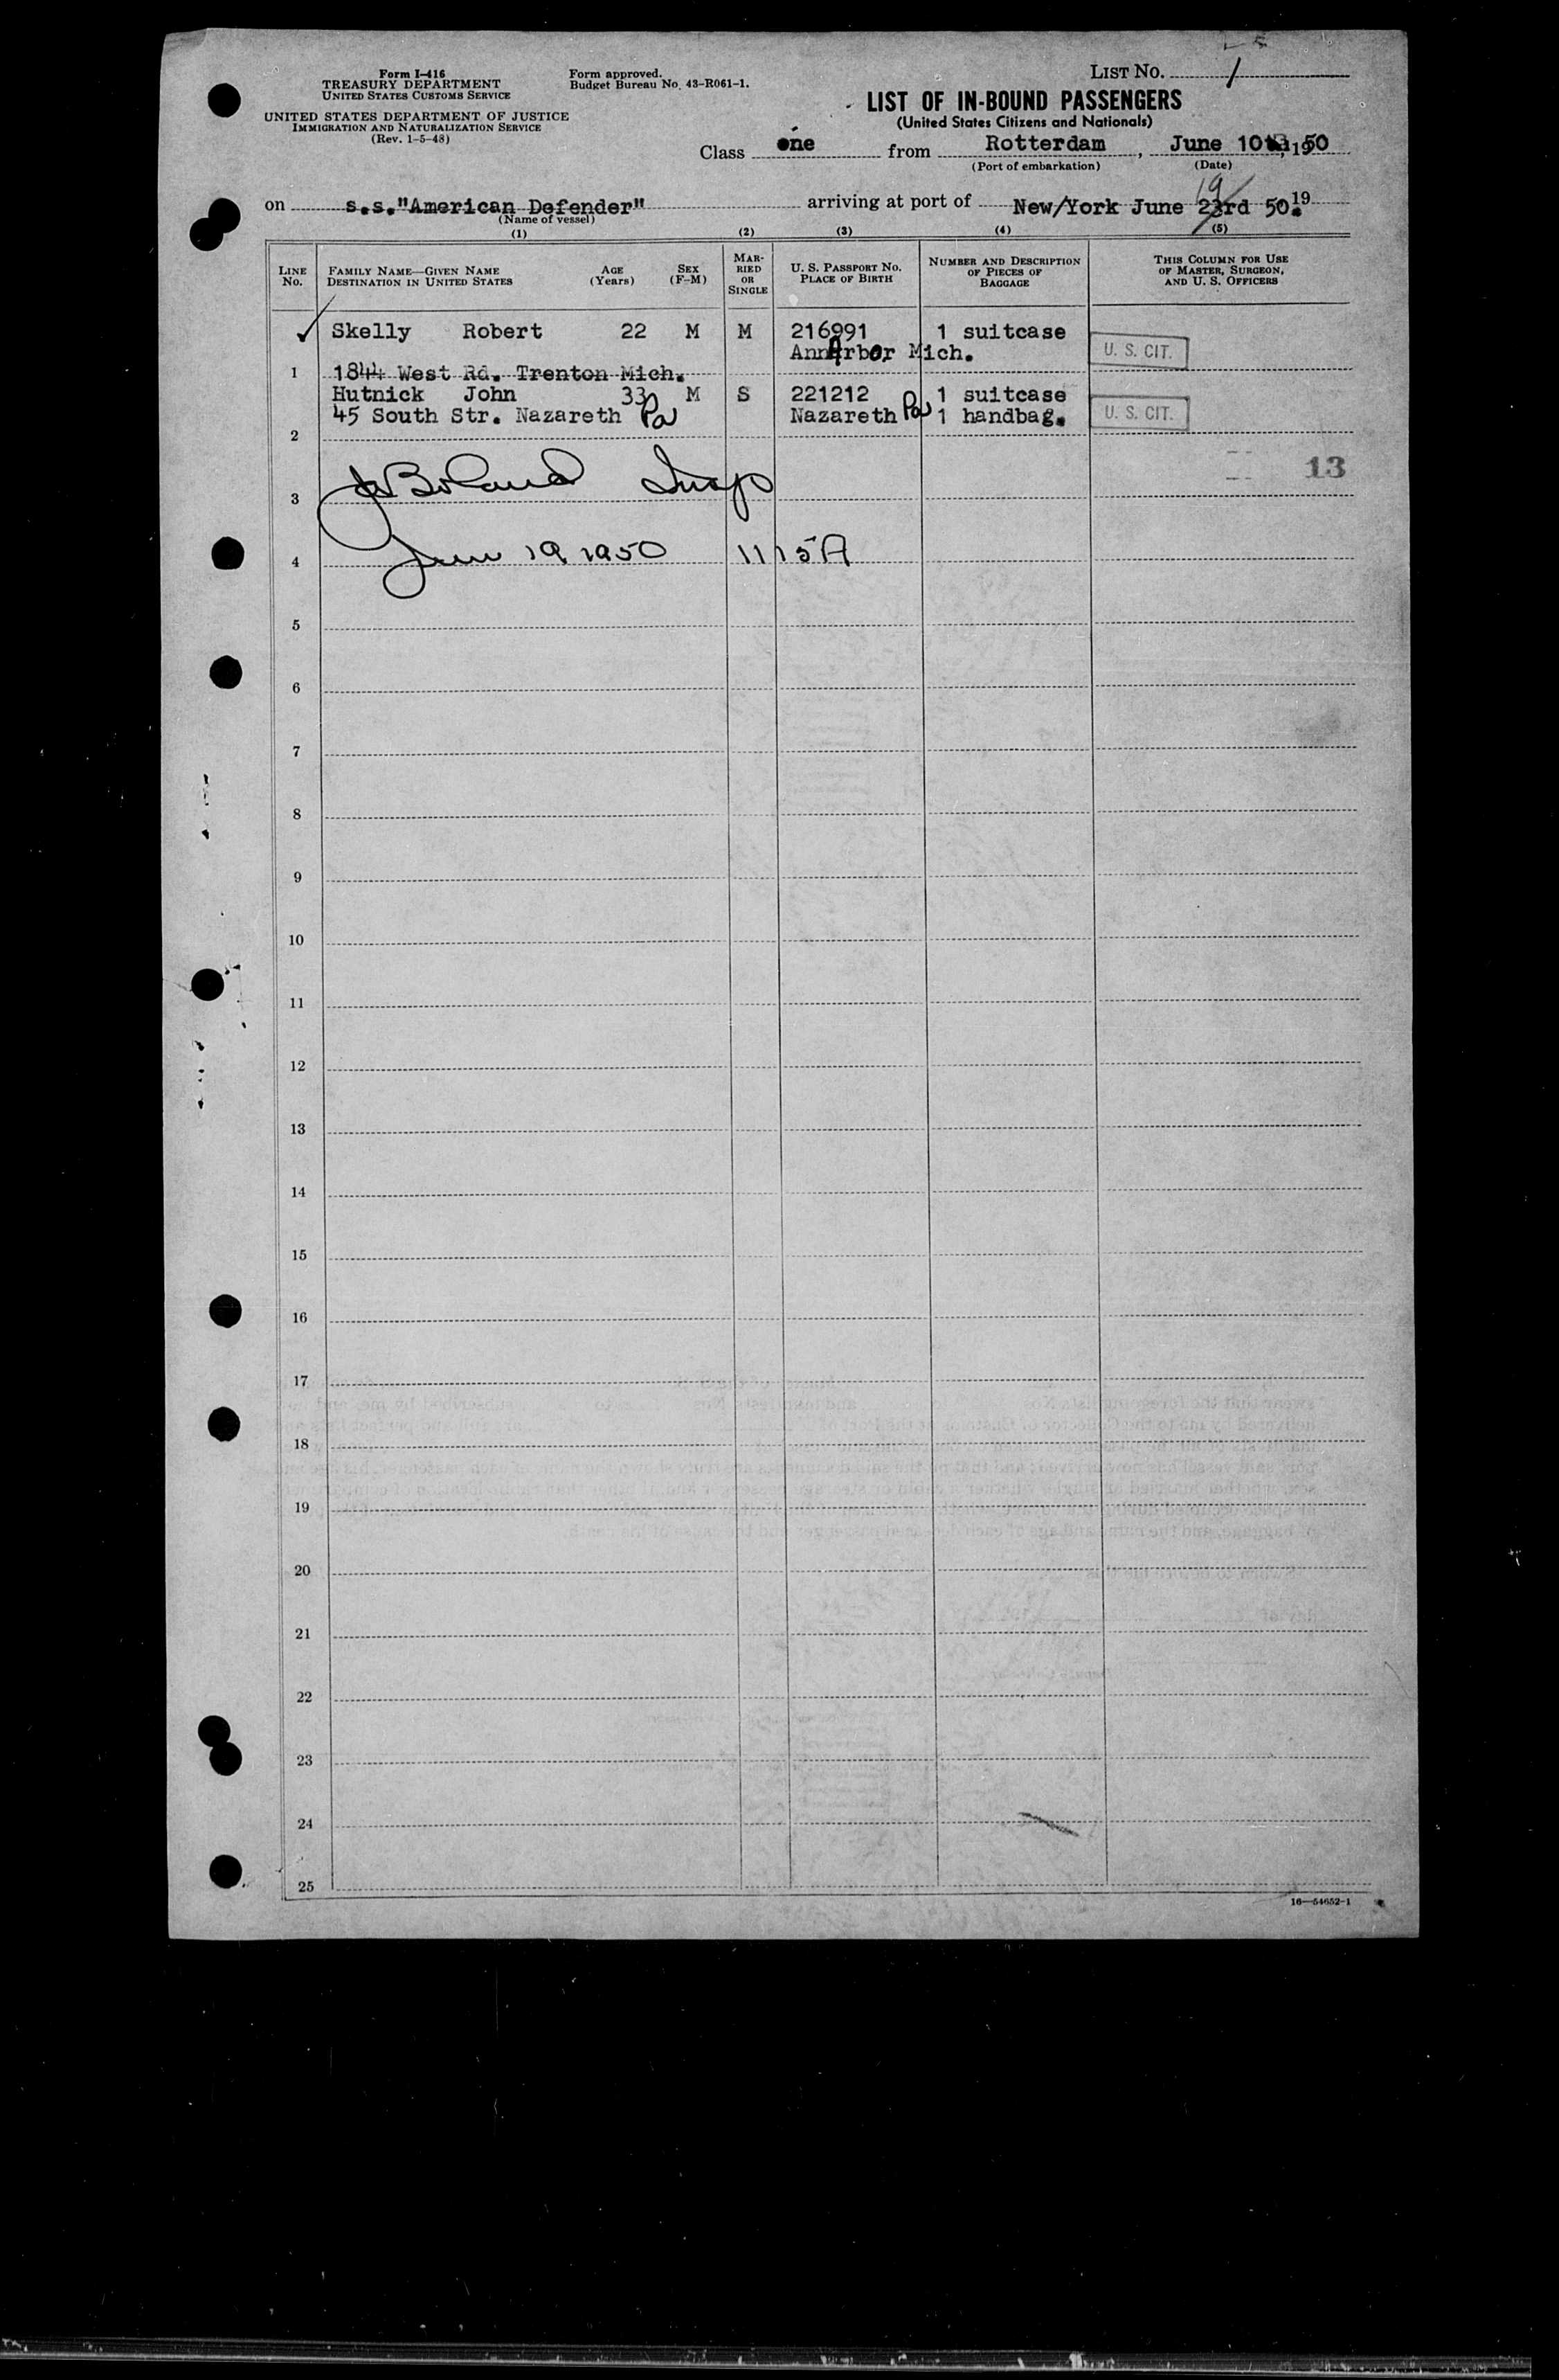 Form I-416
TREASURY DEPARTMENT
UNITED STATES CUSTOMS SERVICE
UNITED STATES DEPARTMENT OF JUSTICE
IMMIGRATION AND NATURALIZATION SERVICE
(Rev. 1-5-48)
Form approved.
Budget Bureau No. 43-R061-1.
LIST NO. 1
LIST OF IN-BOUND PASSENGERS
(United States Citizens and Nationals)
Class one from Rotterdam, June 10th, 1950
(Port of embarkation) (Date)
on s.s."American Defender" arriving at port of New/York June 23rd 50. 19
19
(Name of vessel)
(1) (2) (3) (4) (5)
LINE No. FAMILY NAME—GIVEN NAME DESTINATION IN UNITED STATES AGE (Years) SEX (F-M) MARRIED OR SINGLE U. S. PASSPORT NO. PLACE OF BIRTH NUMBER AND DESCRIPTION OF PIECES OF BAGGAGE THIS COLUMN FOR USE OF MASTER, SURGEON, AND U. S. OFFICERS
Skelly Robert 22 M M 216991 1 suitcase
AnnArbor Mich. U. S. CIT.
1 1844 West Rd. Trenton Mich.
Hutnick John 33 M S 221212 1 suitcase
45 South Str. Nazareth Pa Nazareth Pa 1 handbag. U. S. CIT.
2
13
3 Boland Insp
4 June 19 1950 11 15 A
5
6
7
8
9
10
11
12
13
14
15
16
17
18
19
20
21
22
23
24
25
16—54652-1